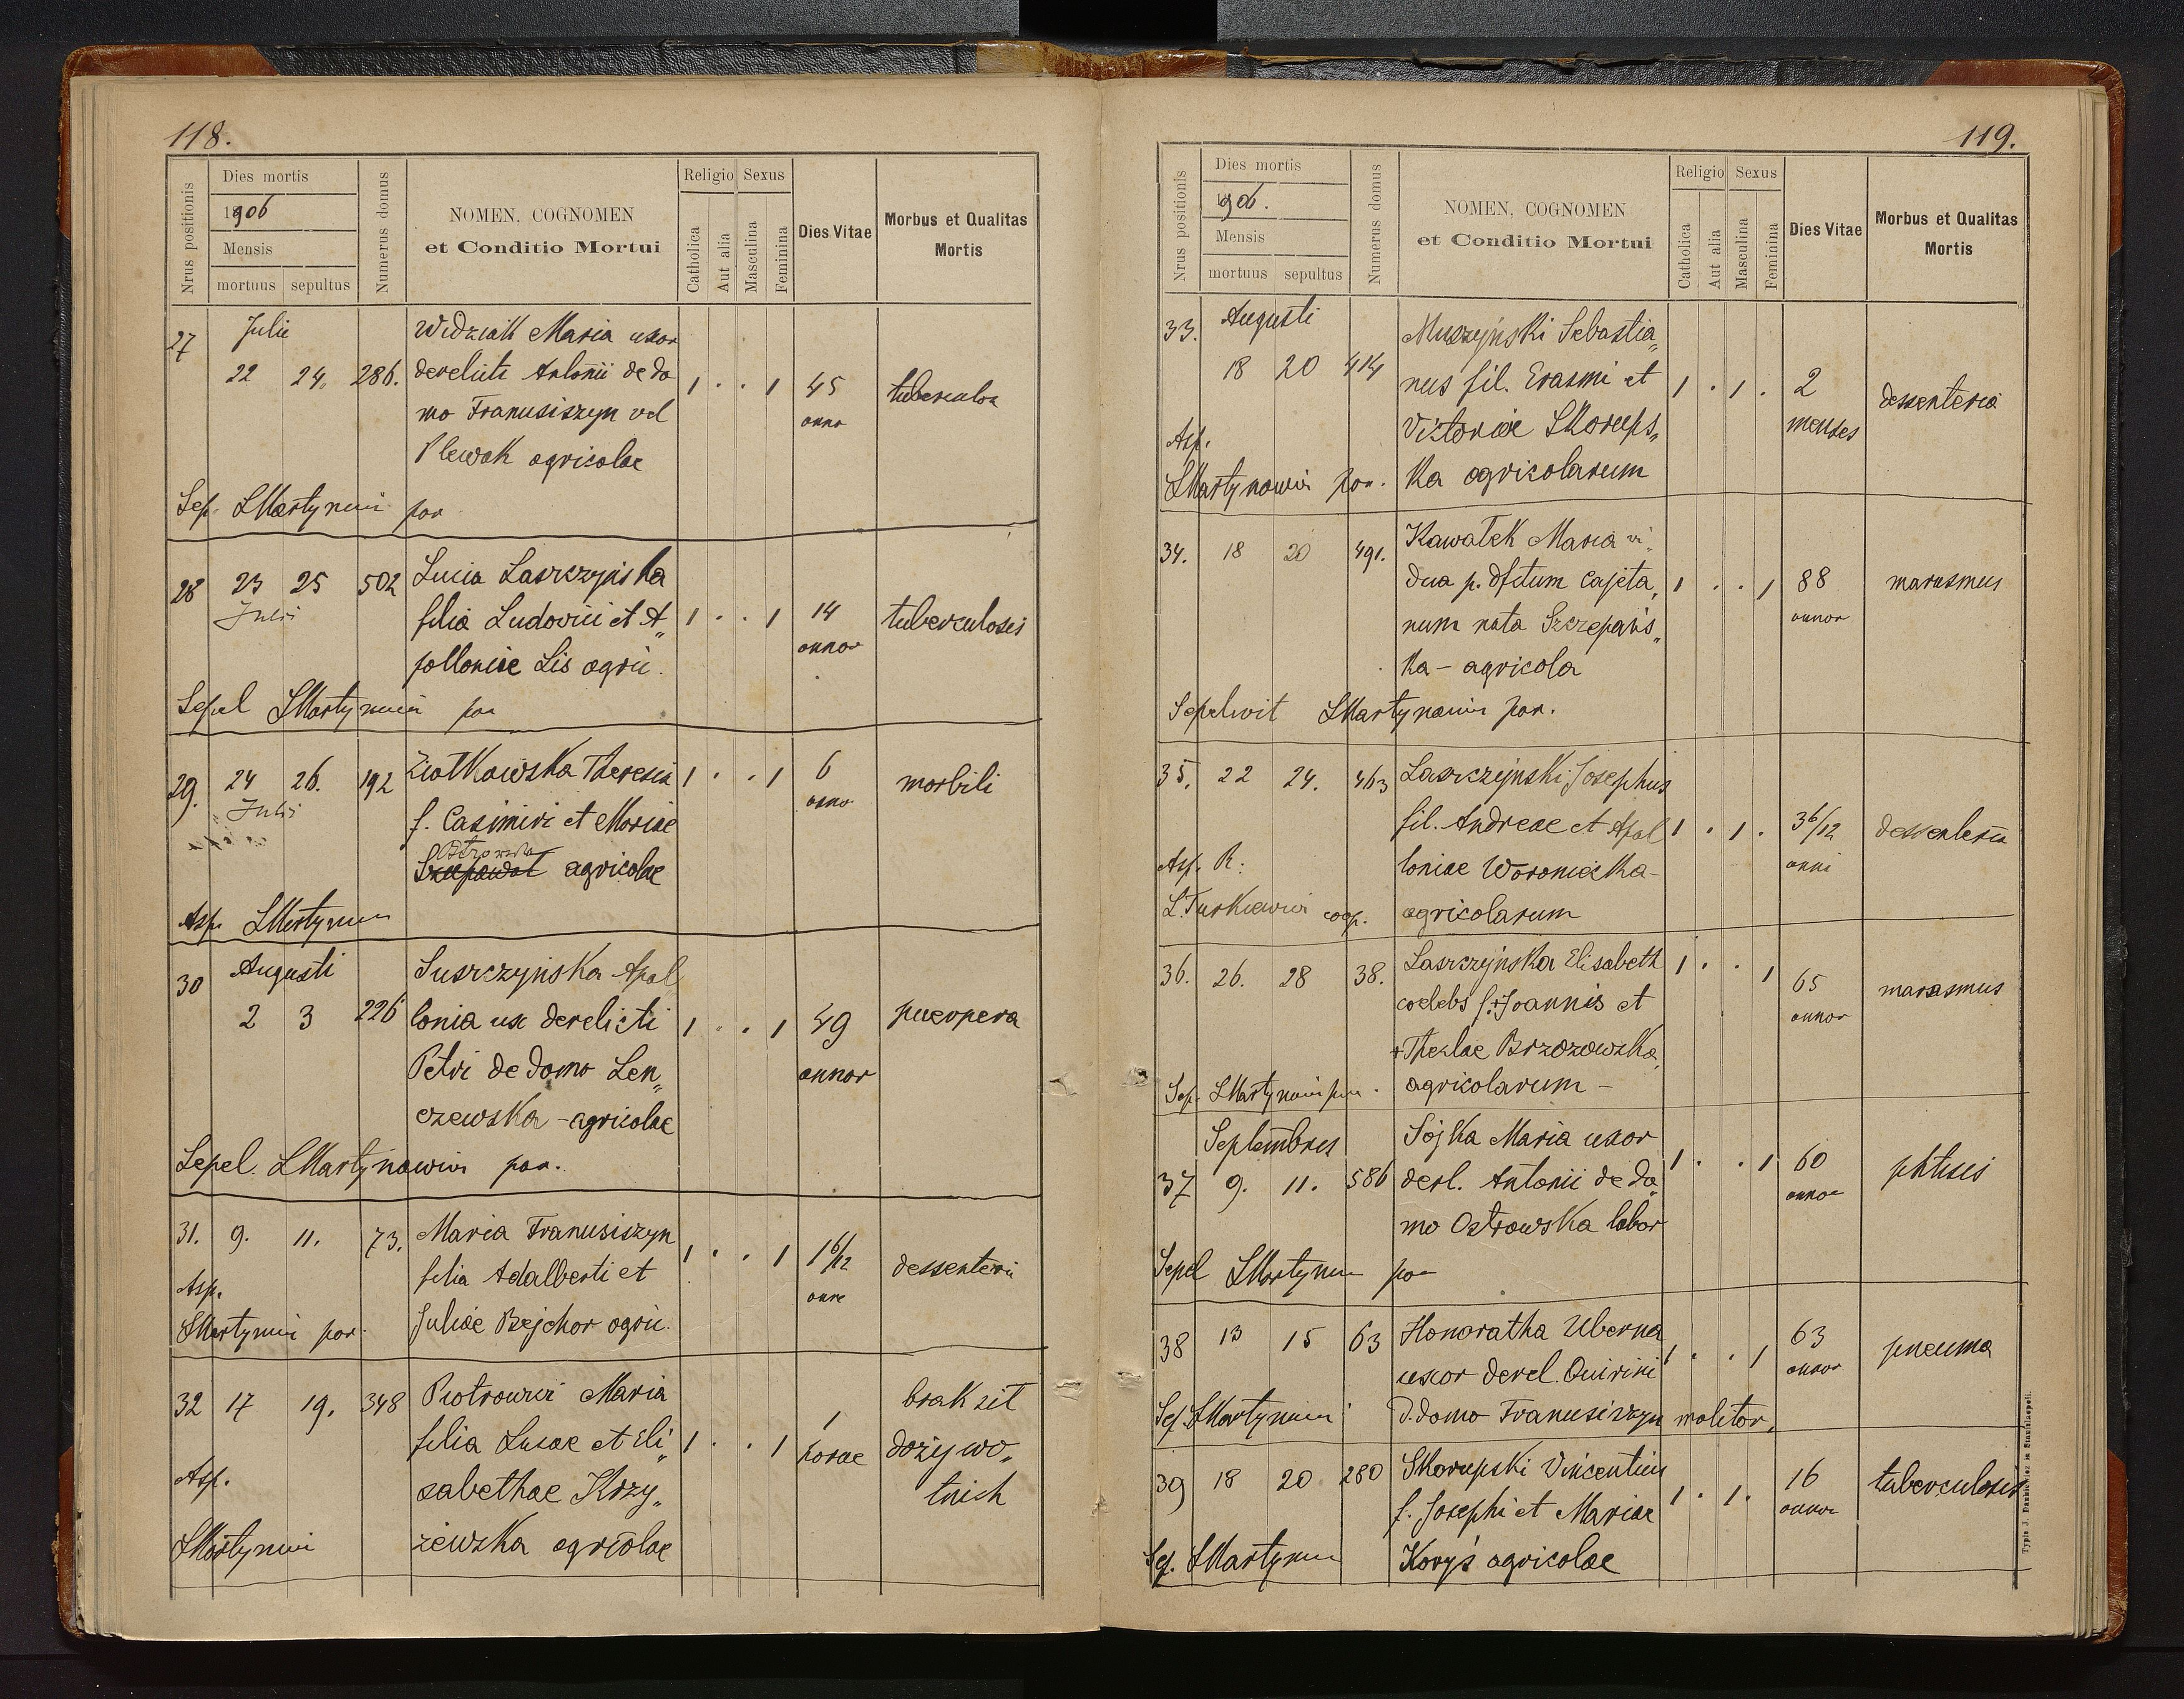 118.
Nrus positionis
Dies mortis
1906
Mensis
mortuus sepultus
Numerus domus
NOMEN, COGNOMEN
et Conditio Mortui
Religio Sexus
Catholica
Aut alia
Masculina
Feminina
Dies Vitae
Morbus et Qualitas
Mortis
27 Julii
22 24. 286.
Widziak Maria uxor
derelicti Antonii de do
mo Franusiszyn vel
Plewak agricolae
1 . . 1 45
anno
tuberculoa
Sep. Martynowi par
28 23 25 502
Julii
Lucia Laszczyńska
filia Ludovici et A„
polloniae Lis agric.
1 . . 1 14
annor
tuberculosis
Sepel Martynowi par
29. 24 26. 192
Julii
Ziatkowska Theresia
f. Casimiri et Mariae
Ostrowska
agricolae
1 . . 1 6
anno
morbili
Asp
30 Augusti
2 3 226
Suszczyńska Apol
lonia ux derelicti
Petri de domo Len„
czewska - agricolae
1 . . 1 49
annor
Sepel. Martynowicz par.
31. 9. 11. 73.
Maria Franusiszyn
filia Adalberti et
Juliae Bejchor agric.
1 . . 1 1 6/12
anni
dessenteri
Asp.
Martynowi par.
32 17 19. 348
Piotrowicz Maria
filia Lucae et Eli„
sabethae Krzy„
żewska agricolae
1 . . 1 1
horae
brak sił
doży wo„
tnich
Asp.
Martynowi
119.
Nrus positionis
Dies mortis
1906.
Mensis
mortuus sepultus
Numerus domus
NOMEN, COGNOMEN
et Conditio Mortui
Religio Sexus
Catholica
Aut alia
Masculina
Feminina
Dies Vitae
Morbus et Qualitas
Mortis
33. Augusti
18 20 414
Muszyński Sebastia„
nus fil. Erasmi et
Victoriae Skorups„
ka agricolarum
1 . 1 . 2
menses
dessenteria
Asp.
Martynowicz par.
34. 18 20 491.
Kawałek Maria vi„
dua p. dfctum Cajeta„
num nata Szczepańs„
ka - agricola
1 . . 1 88
annor
marasmus
Sepelivit Martynowicz par.
35. 22 24. 463
Laszczyński Josephus
fil. Andreae et Apol
loniae Woroniecka -
agricolarum
1 . 1 . 3 6/12
anni
dessenteria
Asp. R:
L. Turkiewicz coop.
36. 26. 28 38.
Laszczyńska Elisabeth
coelebs f. + Joannis et
+ Theclae Brzozowska
agricolarum -
1 . . 1 65
annor
marasmus
Sep. Martynowi par.
37 Septembres
9. 11. 586
Sójka Maria uxor
derl. Antonii de do„
mo Ostrowska labor
1 . . 1 60
annor
phtisis
Sepel par
38 13 15 63
Honoratha Uberna
uxor derel. Quirini
d. domo Franusiszyn molitor.
1 . . 1 63
annor
pneuma
Sep. Martynowi
39 18 20 280
Skorupski Vincentius
f. Josephi et Mariae
Koryś agricolae
1 . 1 . 16
annor
tuberculosis
Sep.
Typis J. Dankiewicz in Stanislaopoli.